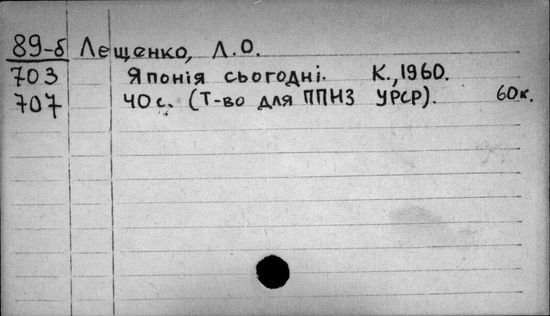 89-б Лещенко, Л.О.
703 Японія сьогодні. К., 1960.
707 40 с. (Т-во для ППНЗ УРСР). 60к.